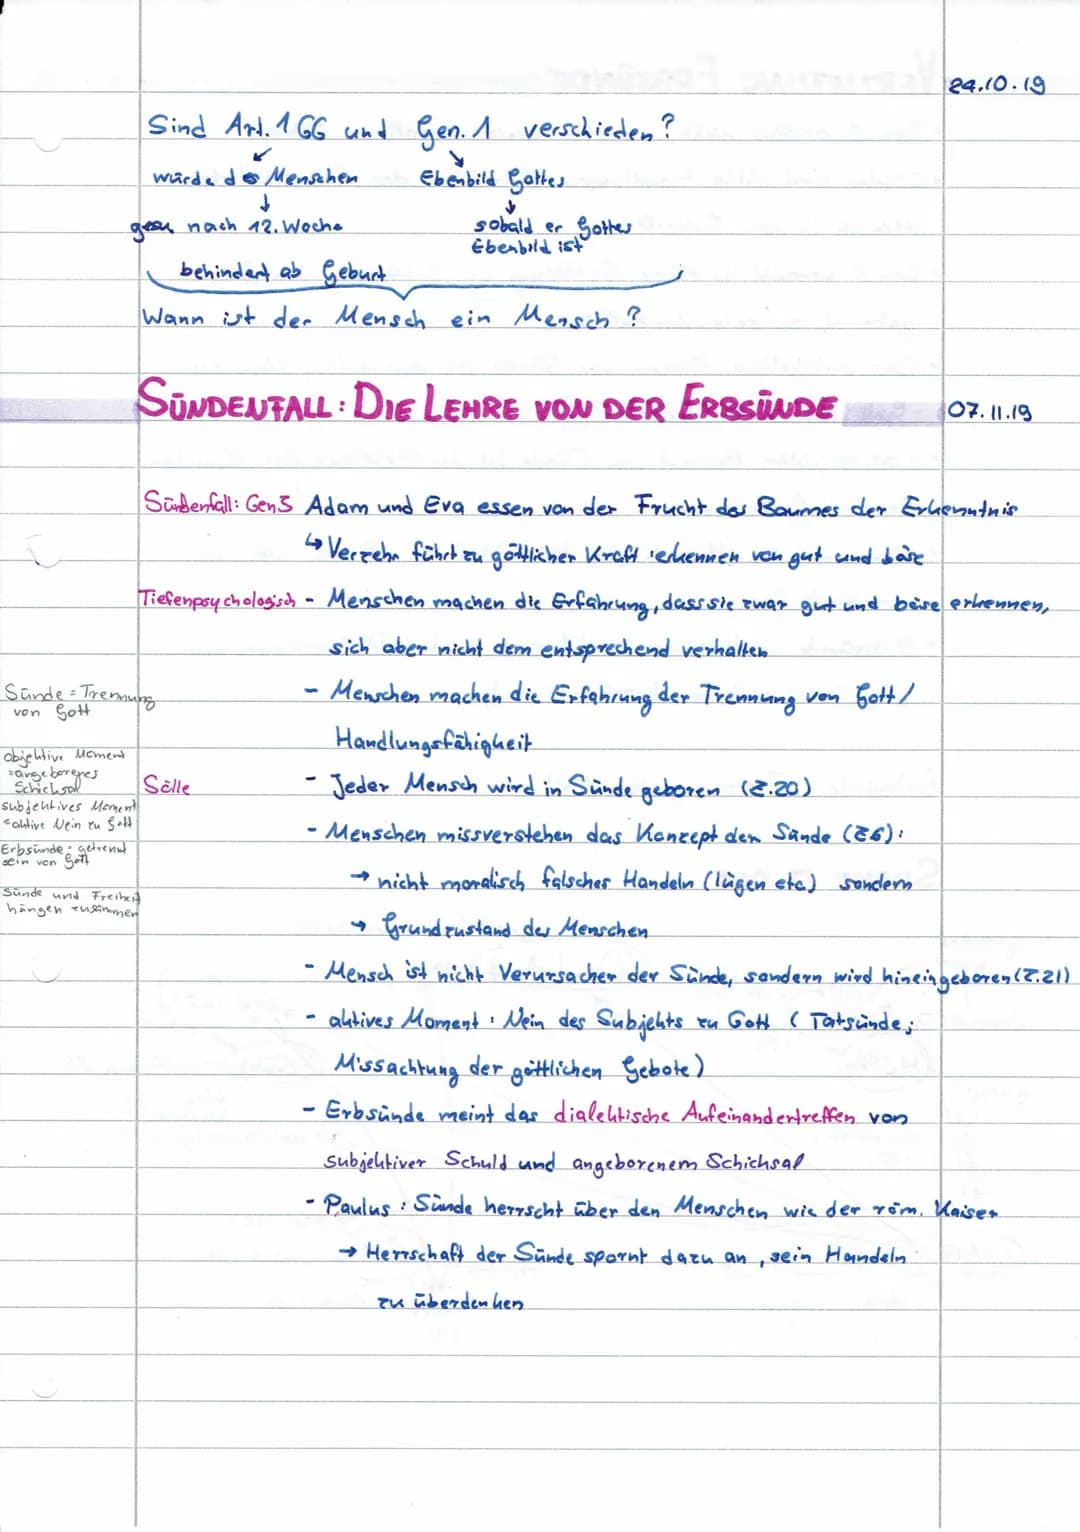 24.10.19
Sind Art. 1 GG und Gen. 1 verschieden?
würde des Menschen Ebenbild Gottes
nach 12. Woche sobald er Gottes
Ebenbild ist
behindert ab Geburt
Wann ist der Mensch ein Mensch?
SÜNDENFALL: DIE LEHRE VON DER ERBSÜNDE 07.11.19
Sündenfall: Gen3 Adam und Eva essen von der Frucht des Baumes der Erkenntnis
↳ Verzehr führt zu göttlicher Kraft: erkennen von gut und böse
Tiefenpsychologisch - Menschen machen die Erfahrung, dass sie zwar gut und böse erkennen,
sich aber nicht dem entsprechend verhalten
Sünde = Trennung
von Gott
- Menschen machen die Erfahrung der Trennung von Gott /
Handlungsfähigkeit
objektive Moment
= angeborenes
Schicksal
subjektives Moment
= aktive Nein zu Gott
Erbsünde: getrennt
sein von Gott
Sünde und Freiheit
hängen zusammen
Sölle - Jeder Mensch wird in Sünde geboren (Z.20)
- Menschen missverstehen das Konzept der Sünde (Z6):
→ nicht moralisch falsches Handeln (lügen etc.) sondern
→ Grundzustand des Menschen
- Mensch ist nicht Verursacher der Sünde, sondern wird hineingeboren (Z.21)
- aktives Moment: Nein des Subjekts zu Gott (Tatsünde;
Missachtung der göttlichen Gebote)
- Erbsünde meint das dialektische Aufeinandertreffen von
subjektiver Schuld und angeborenem Schicksal
- Paulus: Sünde herrscht über den Menschen wie der röm. Kaiser
→ Herrschaft der Sünde spornt dazu an, sein Handeln
zu überdenken